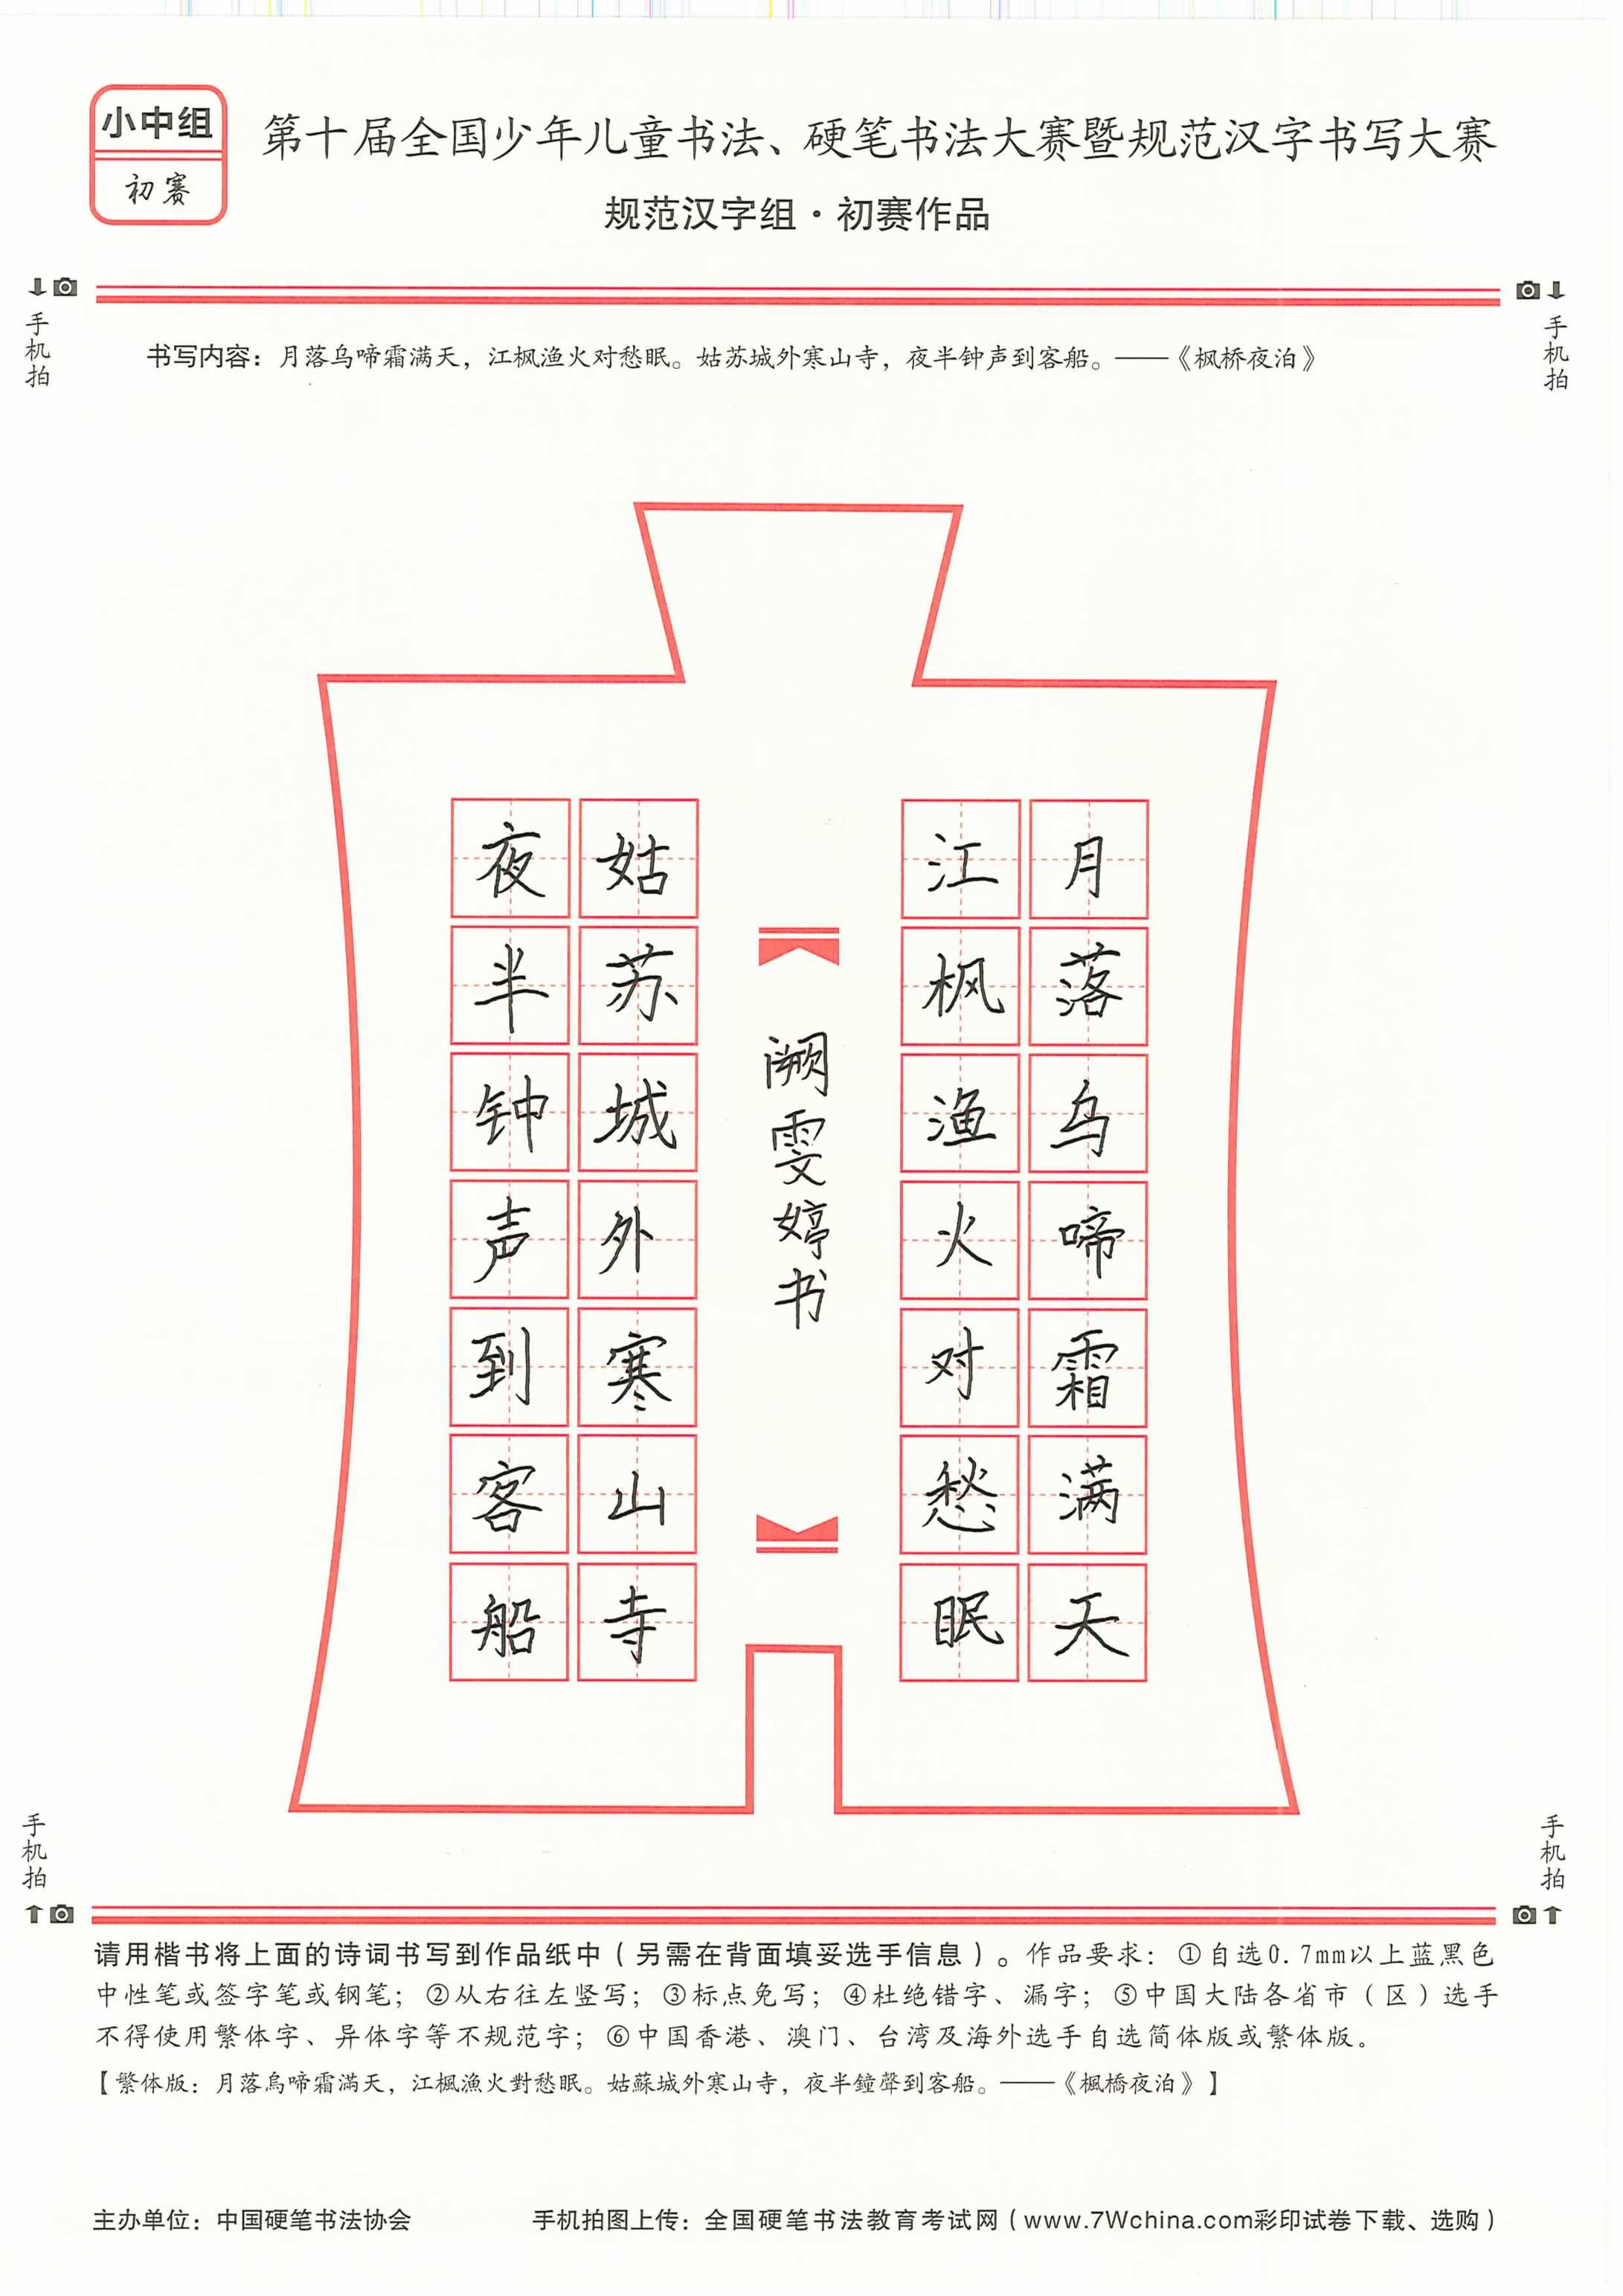 小中组
初赛
第十届全国少年儿童书法、硬笔书法大赛暨规范汉字书写大赛
规范汉字组·初赛作品
手机拍
手机拍
书写内容：月落乌啼霜满天，江枫渔火对愁眠。姑苏城外寒山寺，夜半钟声到客船。——《枫桥夜泊》
月落乌啼霜满天
江枫渔火对愁眠
阚雯婷书
姑苏城外寒山寺
夜半钟声到客船
手机拍
手机拍
请用楷书将上面的诗词书写到作品纸中（另需在背面填妥选手信息）。作品要求：①自选0.7mm以上蓝黑色
中性笔或签字笔或钢笔；②从右往左竖写；③标点免写；④杜绝错字、漏字；⑤中国大陆各省市（区）选手
不得使用繁体字、异体字等不规范字；⑥中国香港、澳门、台湾及海外选手自选简体版或繁体版。
【繁体版：月落烏啼霜滿天，江楓漁火對愁眠。姑蘇城外寒山寺，夜半鐘聲到客船。——《楓橋夜泊》】
主办单位：中国硬笔书法协会
手机拍图上传：全国硬笔书法教育考试网（www.7Wchina.com彩印试卷下载、选购）